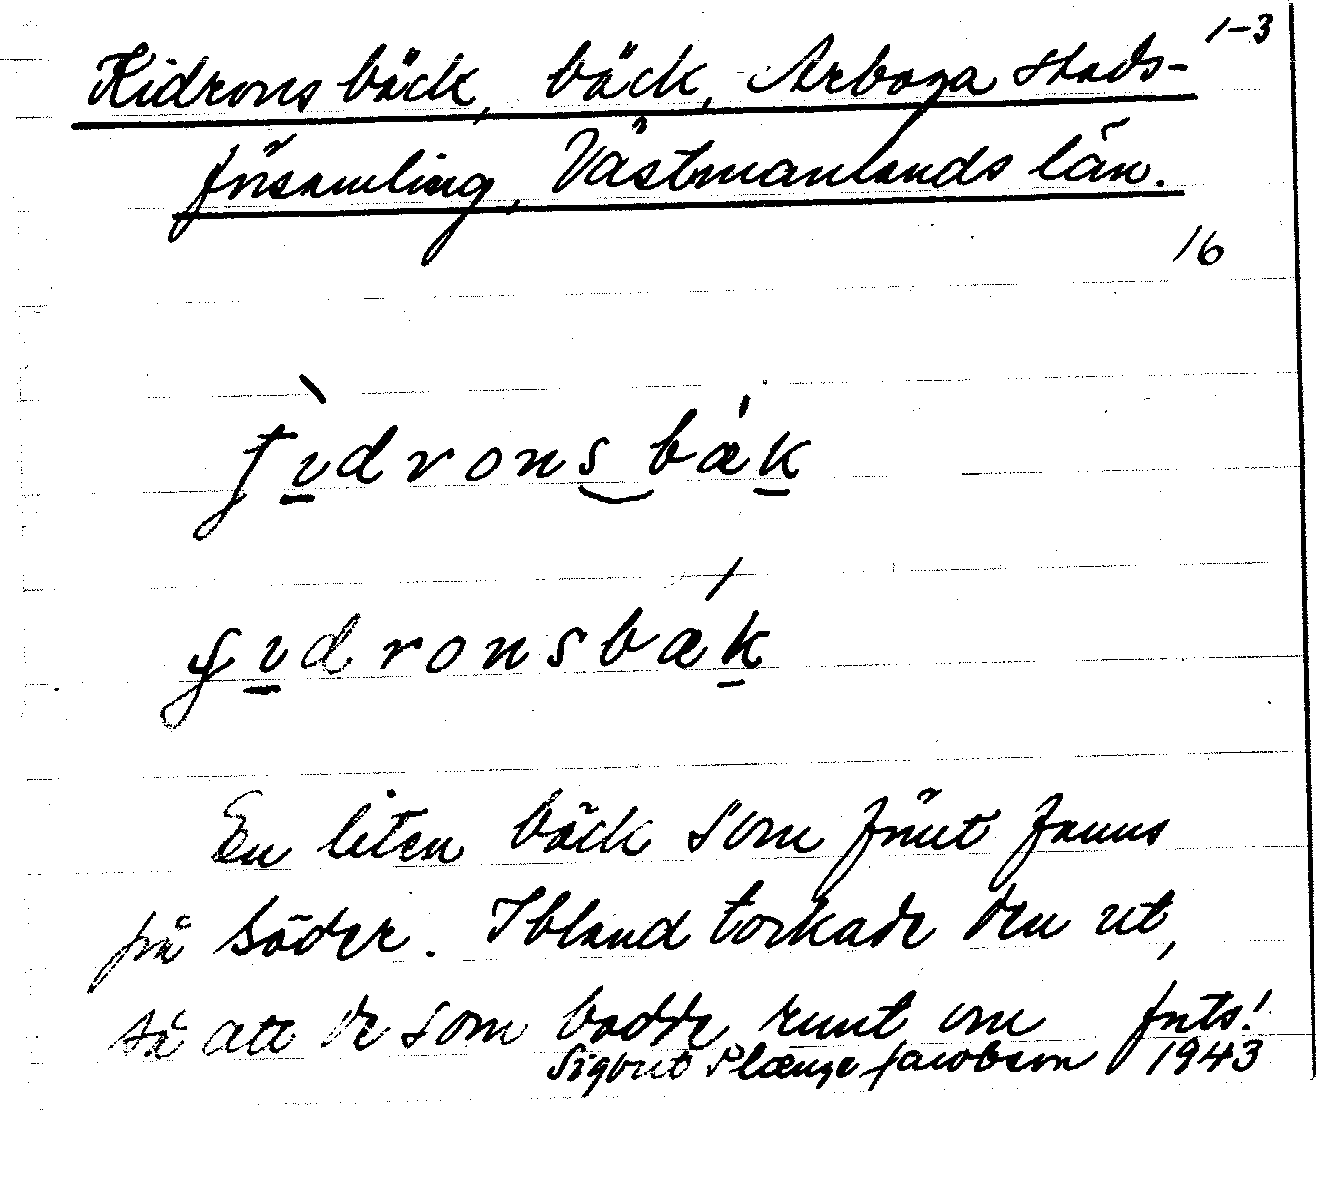 1-3
Kidrons bäck, bäck, Arboga stads-
församling, Västmanlands län.
16
En liten bäck som förut fanns
på Söder. Ibland torkade den ut,
så att de som bodde runt om forts!
Sigbrit Plænge Jacobson 1943